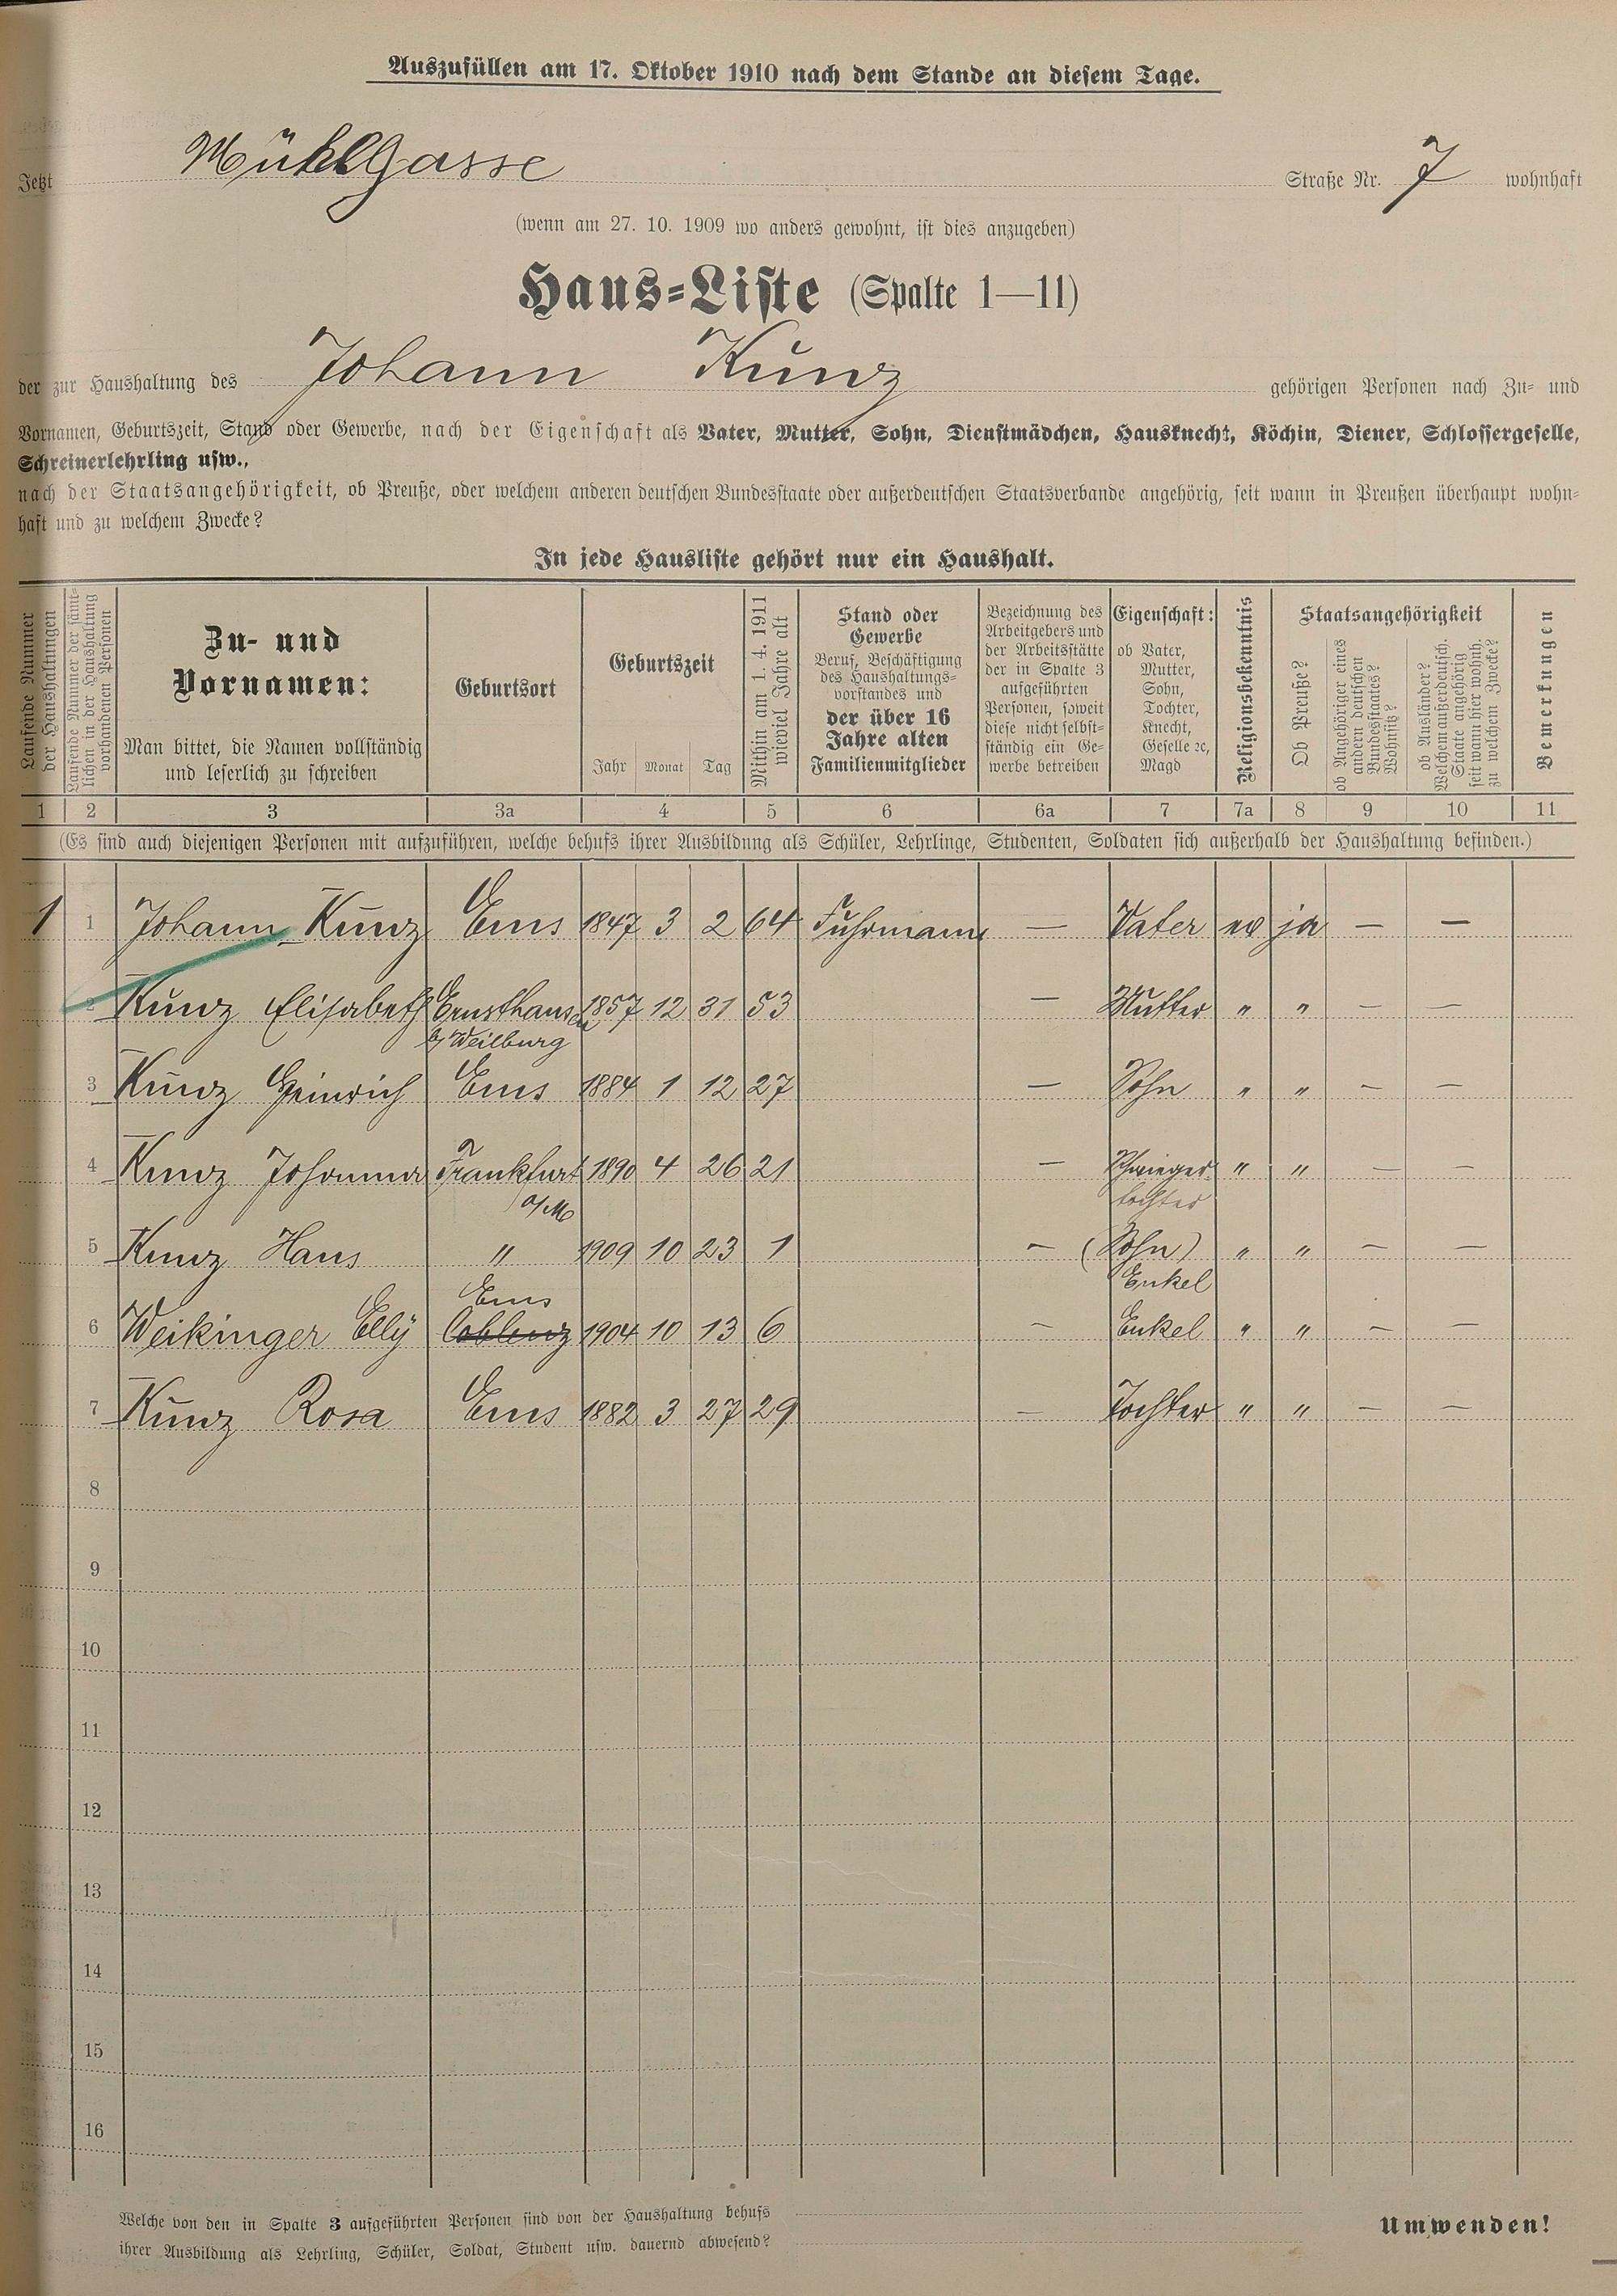 Auszufüllen am 17. Oktober 1910 nach dem Stande an diesem Tage.
Jetzt Mühlgasse Straße Nr. 7 wohnhaft
(wenn am 27. 10. 1909 wo anders gewohnt, ist dies anzugeben)
Haus-Liste (Spalte 1—11)
der zur Haushaltung des Johann Kunz gehörigen Personen nach Zu- und
Vornamen, Geburtszeit, Stand oder Gewerbe, nach der Eigenschaft als Vater, Mutter, Sohn, Dienstmädchen, Hausknecht, Köchin, Diener, Schlossergeselle,
Schreinerlehrling usw.,
nach der Staatsangehörigkeit, ob Preuße, oder welchem anderen deutschen Bundesstaate oder außerdeutschen Staatsverbande angehörig, seit wann in Preußen überhaupt wohn-
haft und zu welchem Zwecke?
In jede Hausliste gehört nur ein Haushalt.
Laufende Nummer
der Haushaltungen
Laufende Nummer der sämt-
lichen in der Haushaltung
vorhandenen Personen
Zu- und
Vornamen:
Man bittet, die Namen vollständig
und leserlich zu schreiben
Geburtsort
Geburtszeit
Jahr Monat Tag
Mithin am 1. 4. 1911
wieviel Jahre alt
Stand oder
Gewerbe
Beruf, Beschäftigung
des Haushaltungs-
vorstandes und
der über 16
Jahre alten
Familienmitglieder
Bezeichnung des
Arbeitgebers und
der Arbeitsstätte
der in Spalte 3
aufgeführten
Personen, soweit
diese nicht selbst-
ständig ein Ge-
werbe betreiben
Eigenschaft:
ob Vater,
Mutter,
Sohn,
Tochter,
Knecht,
Geselle ꝛc,
Magd
Religionsbekenntnis
Staatsangehörigkeit
Ob Preuße?
ob Angehöriger eines
andern deutschen
Bundesstaates?
Wohnsitz?
ob Ausländer?
Welchem außerdeutsch.
Staate angehörig
seit wann hier wohnh.
zu welchem Zwecke?
Bemerkungen
1 2 3 3a 4 5 6 6a 7 7a 8 9 10 11
(Es sind auch diejenigen Personen mit aufzuführen, welche behufs ihrer Ausbildung als Schüler, Lehrlinge, Studenten, Soldaten sich außerhalb der Haushaltung befinden.)
1 1 Johann Kunz Ems 1847 3 2 64 Fuhrmann — Vater ev ja — —
2 Kunz Elisabeth Ernsthausen 1857 12 31 53 — Mutter " " — —
b/ Weilburg
3 Kunz Heinrich Ems 1884 1 12 27 — Sohn " " — —
4 Kunz Johanna Frankfurt 1890 4 26 21 — Schwieger- " " — —
a/M tochter
5 Kunz Hans " 1909 10 23 1 — (Sohn) " " — —
Enkel
Ems
6 Weikinger Elly Coblenz 1904 10 13 6 — Enkel " " — —
7 Kunz Rosa Ems 1882 3 27 29 — Tochter " " — —
8
9
10
11
12
13
14
15
16
Welche von den in Spalte 3 aufgeführten Personen sind von der Haushaltung behufs
ihrer Ausbildung als Lehrling, Schüler, Soldat, Student usw. dauernd abwesend?
Umwenden!